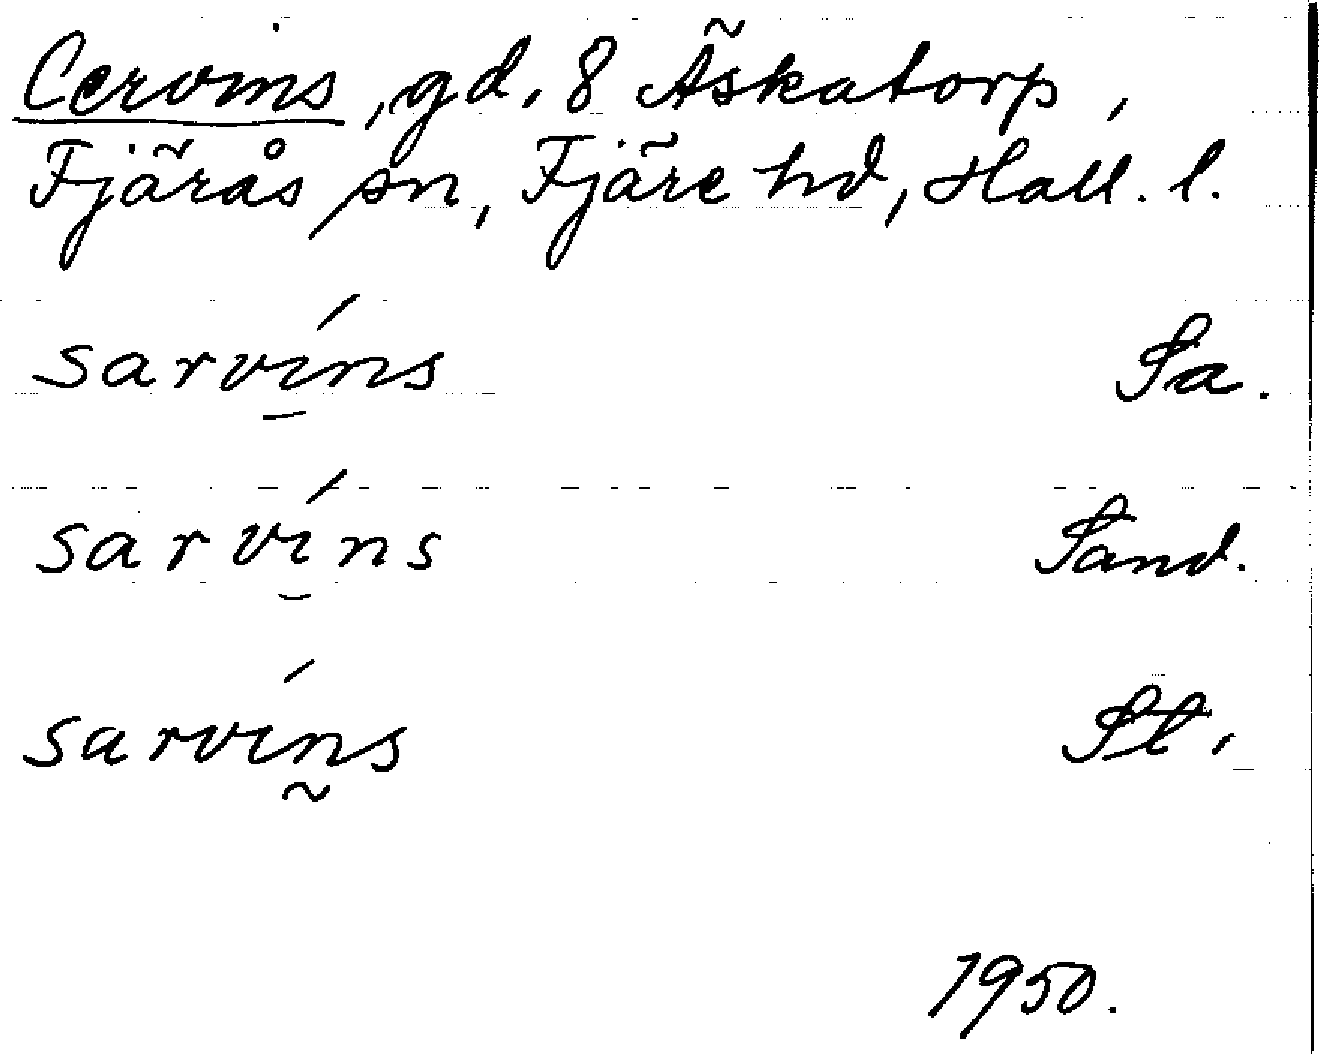 Cervins, gd. 8 Äskatorp,
Fjärås sn, Fjäre hd, Hall. l.
sarvíns Sa.
sarvíns Sand.
sarvíns St.
1950.